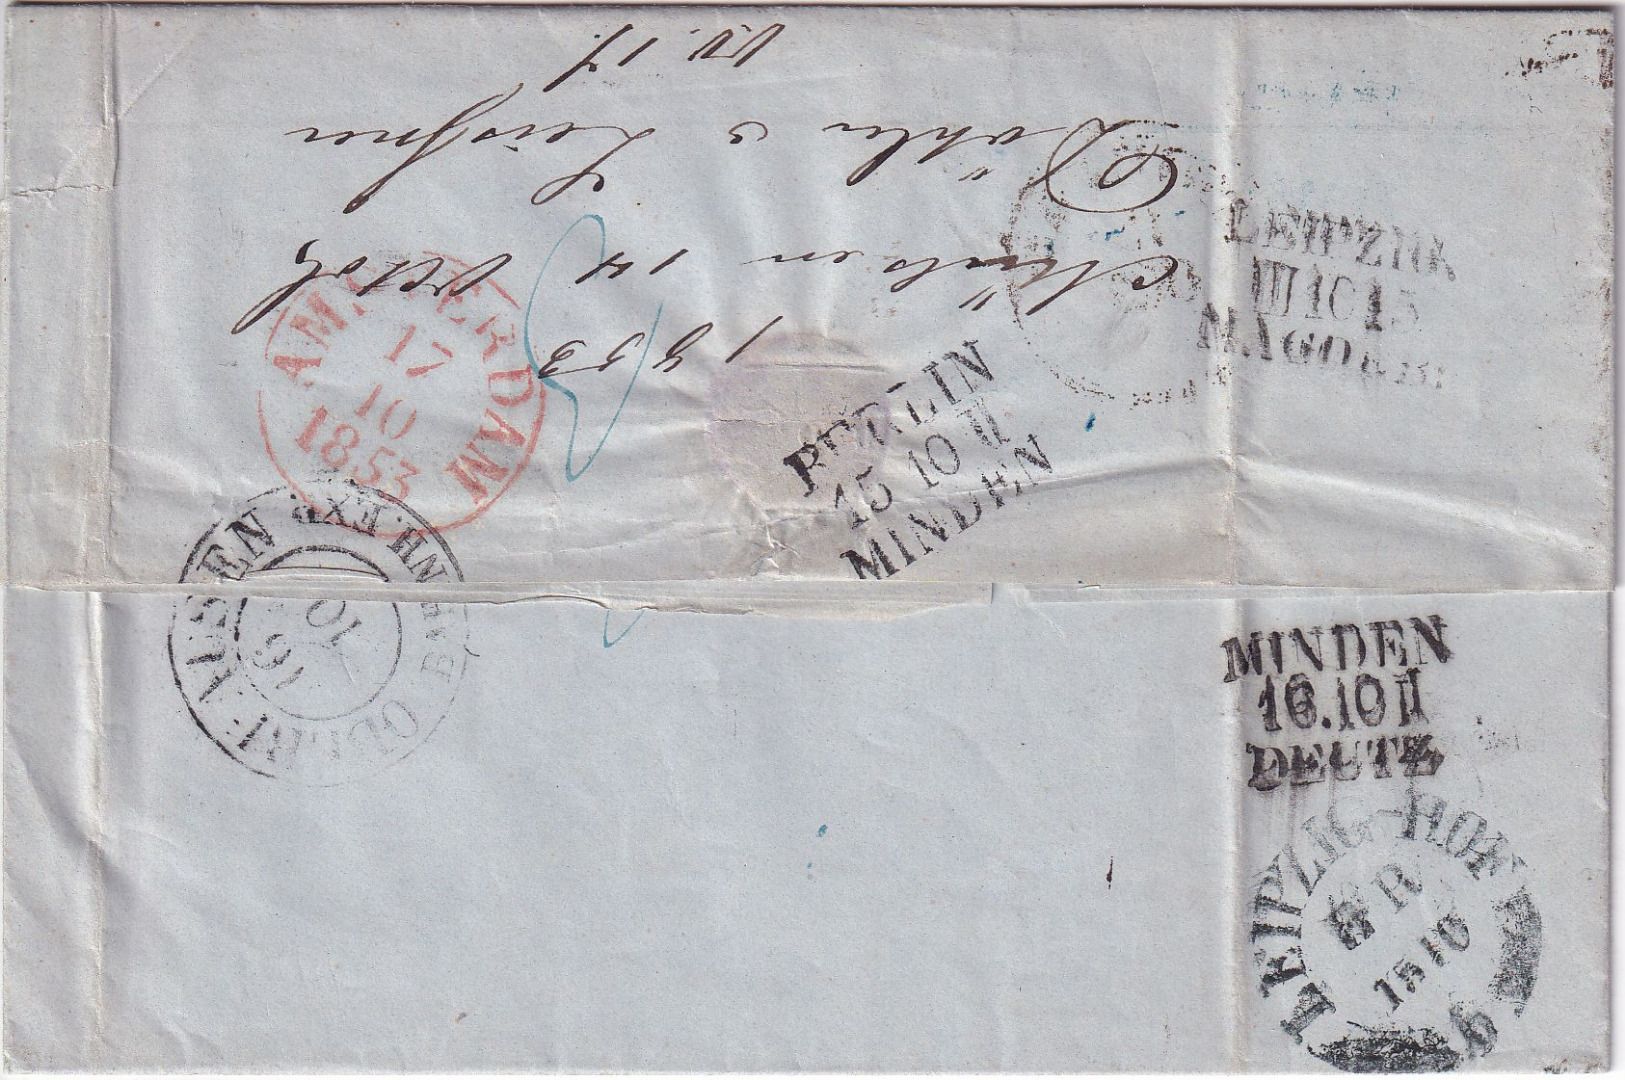 1853
14
Döhler &
LEIPZIG
III 10 15
MAGDEB.
AMSTERDAM
17
10
1853
BERLIN
15 10 II
MINDEN
OBERHAUSEN
BAHNH. EXP.
16
10
MINDEN
16.10 II
DEUTZ
LEIPZIG HOF
BR
15 10